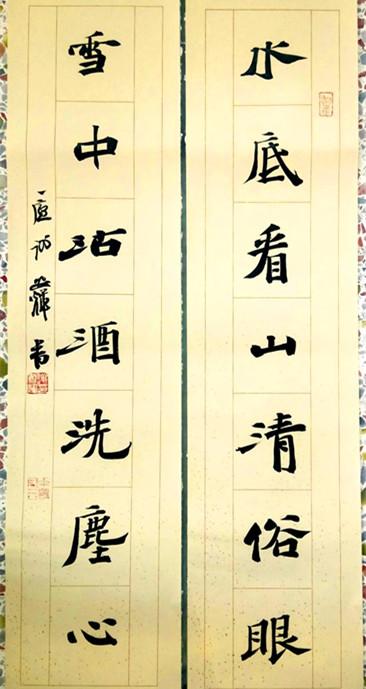 水底看山清俗眼
雪中沽酒洗尘心